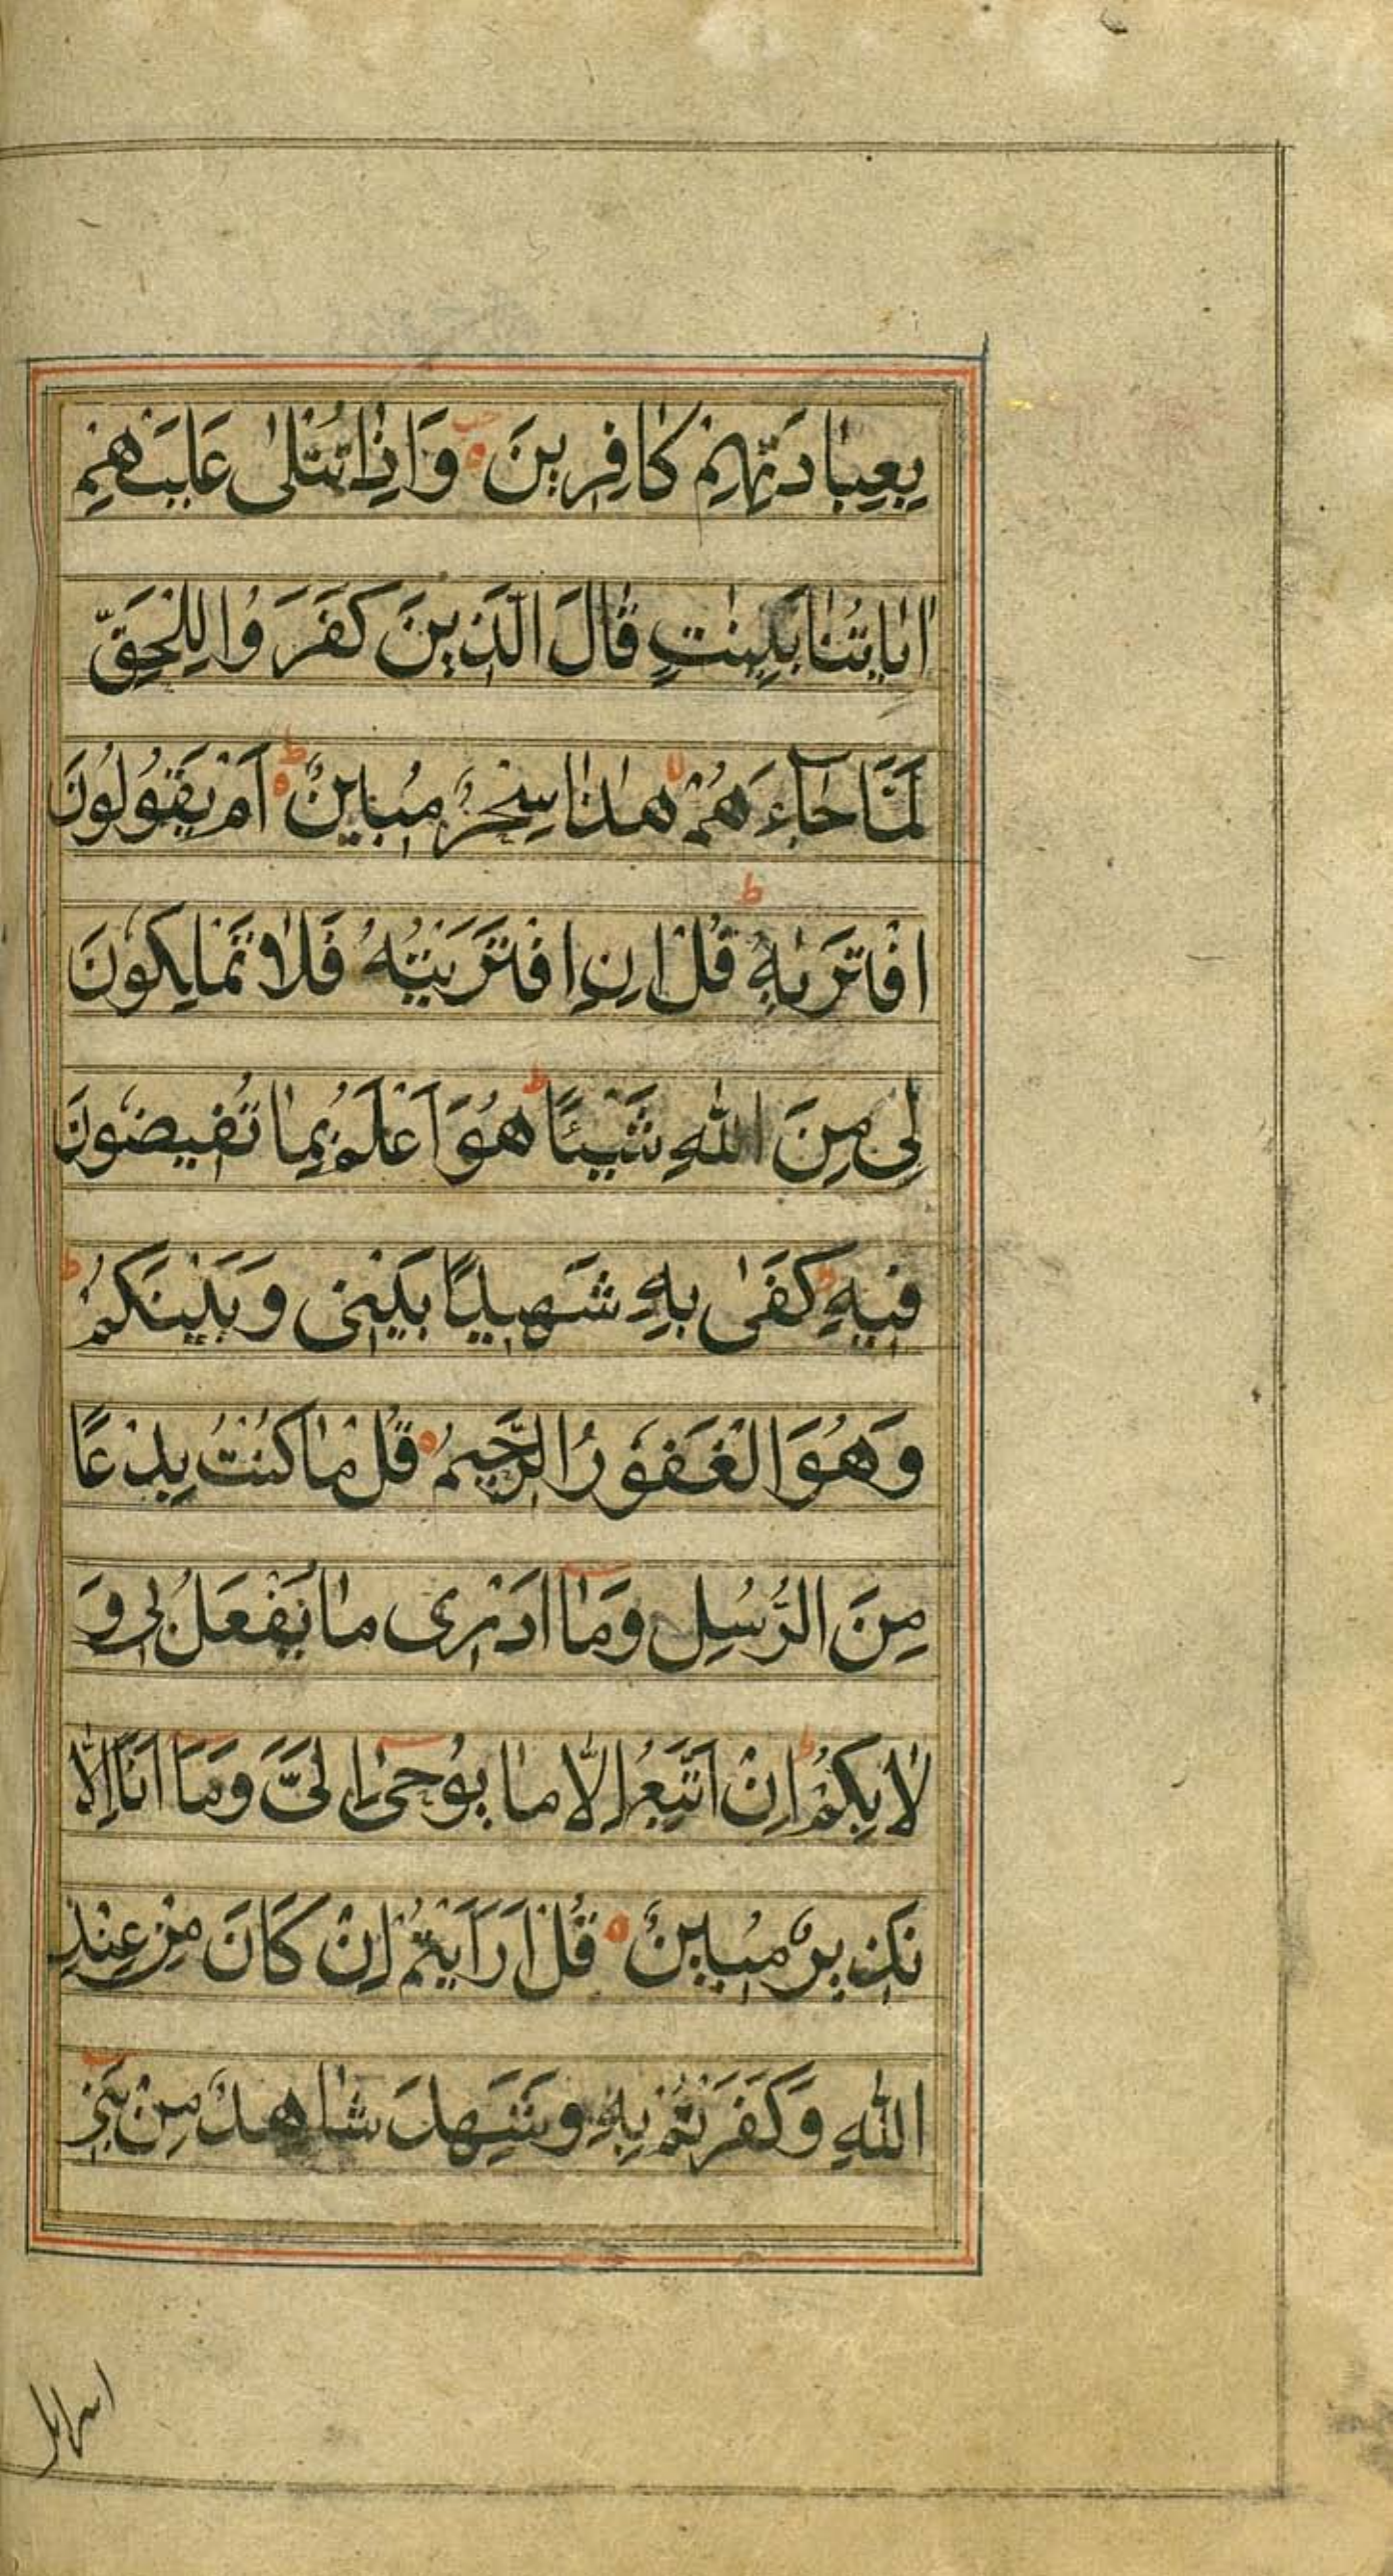 بِعِبَادَتِهِمْ كَافِرِينَ وَاِذَا تُتْلٰى عَلَيْهِمْ
اٰيَاتُنَا بَيِّنٰتٍ قَالَ الَّذِينَ كَفَرُوْا لِلْحَقِّ
لَمَّا جَآءَهُمْ هٰذَا سِحْرٌ مُبِينٌ اَمْ يَقُولُونَ
افْتَرٰيهُ قُلْ اِنِ افْتَرَيْتُهُ فَلَا تَمْلِكُونَ
لِى مِنَ اللهِ شَيْئًا هُوَ اَعْلَمُ بِمَا تُفِيضُونَ
فِيهِ كَفٰى بِهِ شَهِيدًا بَيْنِى وَبَيْنَكُمْ
وَهُوَ الْغَفُورُ الرَّحِيمُ قُلْ مَا كُنْتُ بِدْعًا
مِنَ الرُّسُلِ وَمَا اَدْرِى مَا يُفْعَلُ بِى وَ
لَا بِكُمْ اِنْ اَتَّبِعُ اِلَّا مَا يُوحٰى اِلَىَّ وَمَا اَنَا اِلَّا
نَذِيرٌ مُبِينٌ قُلْ اَرَاَيْتُمْ اِنْ كَانَ مِنْ عِنْدِ
اللهِ وَكَفَرْتُمْ بِهِ وَشَهِدَ شَاهِدٌ مِنْ بَنِى
اسرایل